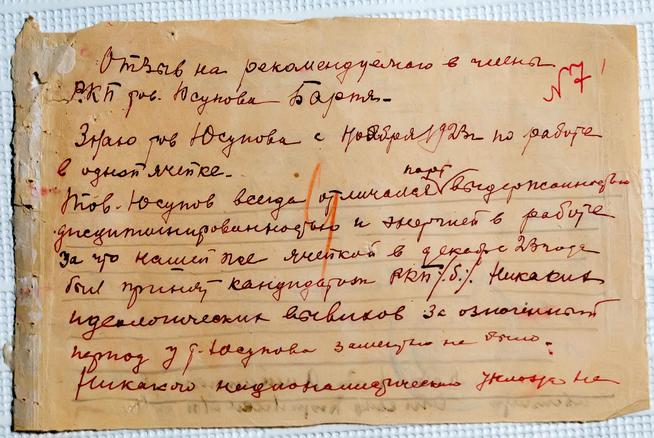 Отзыв на рекомендуемого в члены
№7
РКП тов. Юсупова Бария.
Знаю тов Юсупова с ноября 1923г по работе
в одной ячейке.
парт
Тов. Юсупов всегда отличался выдержанностью
дисциплинированностью и энергией в работе
За что нашей же ячейкой в декабре 23 года
был принят кандидатом РКП/б/. Никаких
идеологических вывихов за означенный
период у т. Юсупова замечено не было.
Никакого националистический уклона не